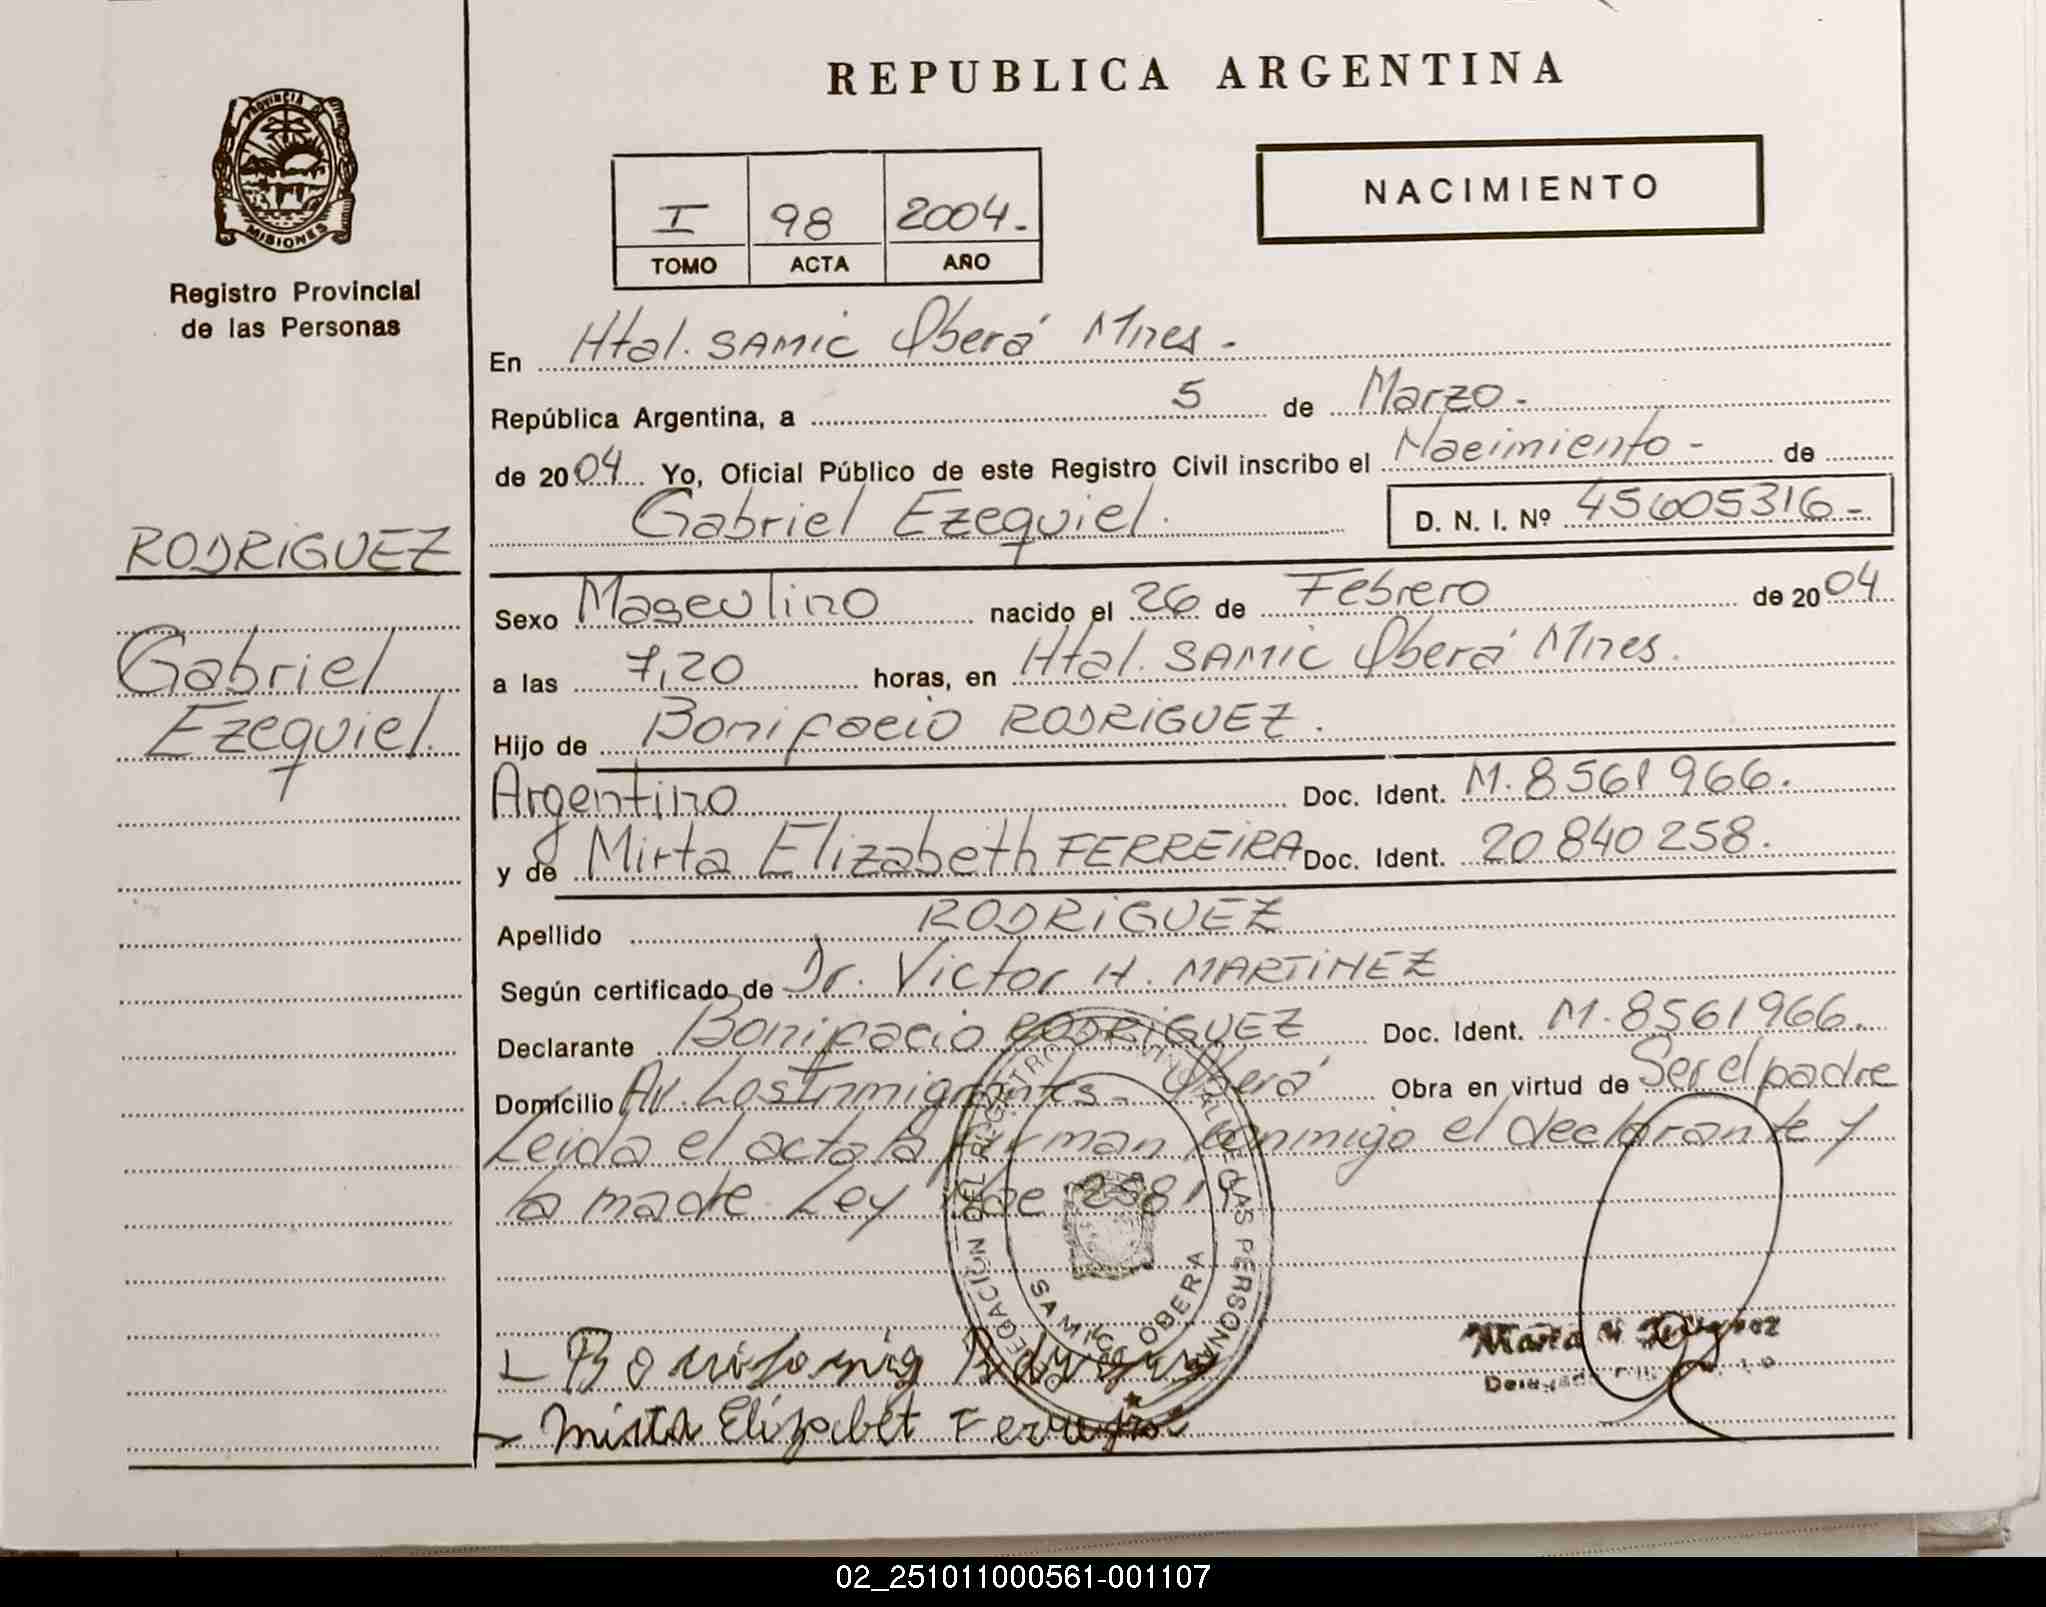 REPUBLICA ARGENTINA
PROVINCIA DE
MISIONES
Registro Provincial
de las Personas
I 98 2004.-
TOMO ACTA AÑO
NACIMIENTO
En Htal. SAMIC Oberá Mnes.-
República Argentina, a 5 de Marzo.-
de 2004 Yo, Oficial Público de este Registro Civil inscribo el Nacimiento - de
Gabriel Ezequiel. D. N. I. Nº 45605316-
RODRIGUEZ
Gabriel
Ezequiel.
Sexo Masculino nacido el 26 de Febrero de 2004
a las 7,20 horas, en Htal. SAMIC Oberá Mnes.
Hijo de Bonifacio RODRIGUEZ.
Argentino Doc. Ident. M. 8561966.
y de Mirta Elizabeth FERREIRA Doc. Ident. 20840258.
Apellido RODRIGUEZ
Según certificado de Dr. Victor H. MARTINEZ
Declarante Bonifacio RODRIGUEZ Doc. Ident. M. 8561966.
Domicilio Av. Los Inmigrantes - Oberá Obra en virtud de Ser el padre
Leida el acta la firman conmigo el declarante y
la madre. Ley
DELEGACION DEL REGISTRO PROVINCIAL DE LAS PERSONAS
SAMIC OBERA
Mirta Elizabet
Maria
02_251011000561-001107